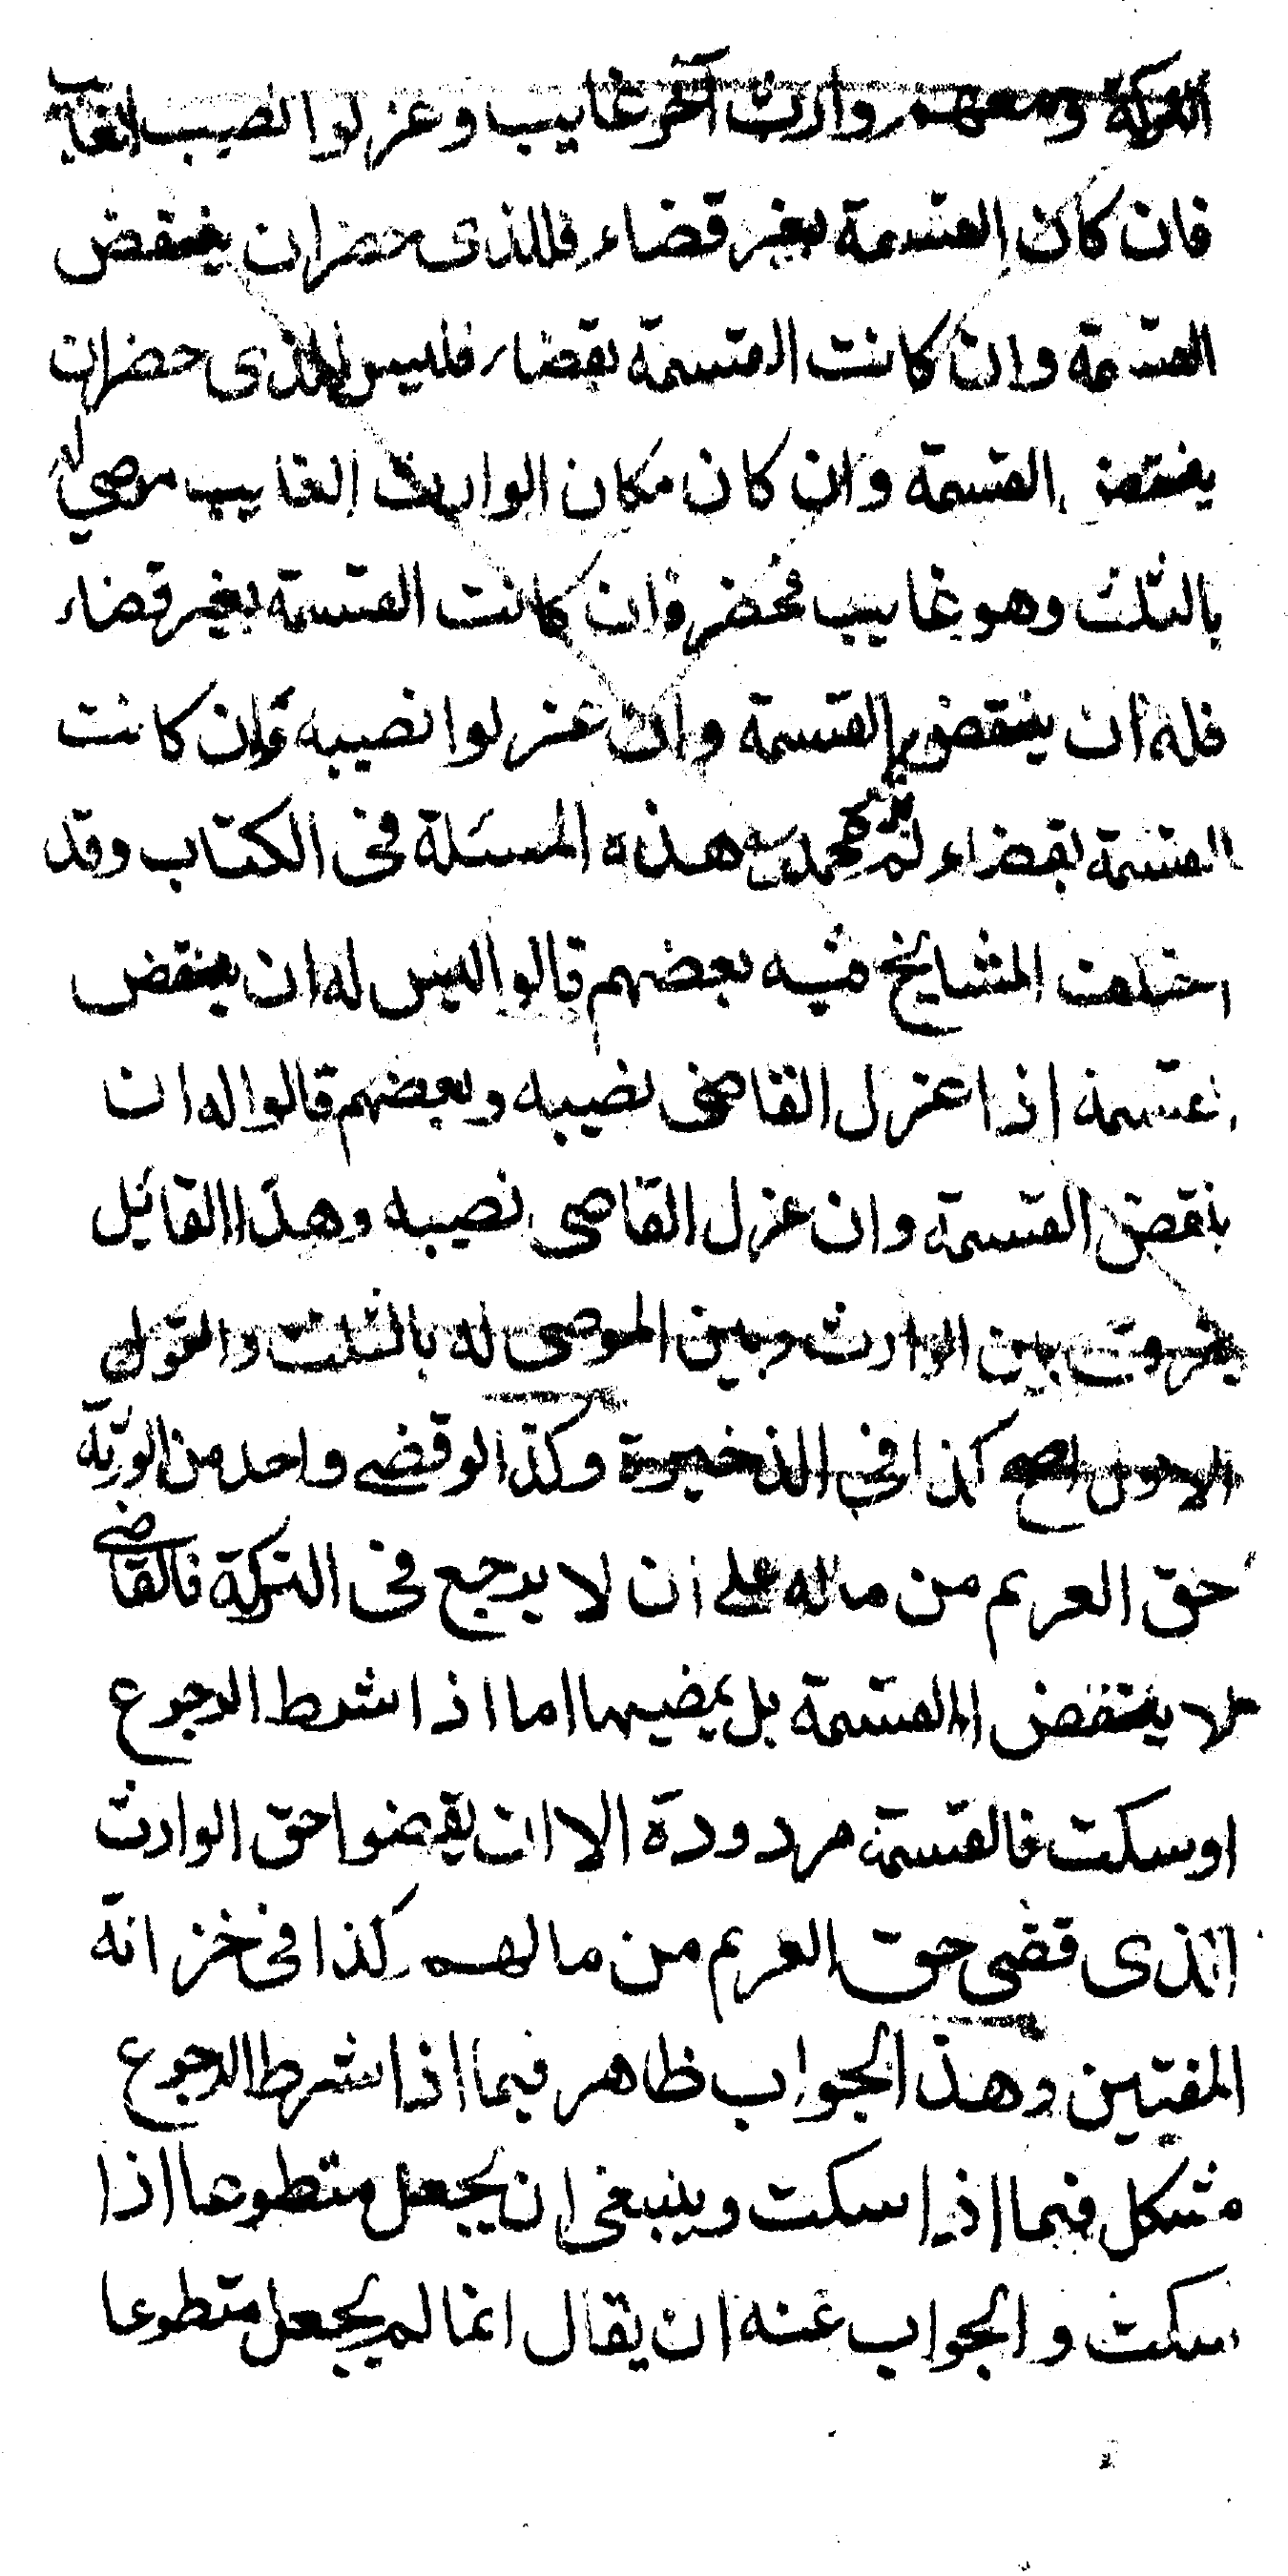 التركة ومعهم وارث آخر غايب وعزلوا نصيب الغايب
فان كان القسمة بغير قضاء فللذى حضر ان ينقض
القسمة وان كانت القسمة بقضاء فليس للذى حضر ان
ينقض القسمة وان كان مكان الوارث الغايب موصى له
بالثلث وهو غايب فحضر فان كانت القسمة بغير قضاء
فله ان ينقض القسمة وان عزلوا نصيبه وان كانت
القسمة بقضاء لم محمد هذه المسئلة فى الكتاب وقد
اختلف المشايخ فيه بعضهم قالوا ليس له ان ينقض
القسمة اذا عزل القاضى نصيبه وبعضهم قالوا له ان
ينقض القسمة وان عزل القاضى نصيبه وهذا القايل
يفرق بين الوارث وبين الموصى له بالثلث والقول
الاول اصح كذا فى الذخيرة وكذا لو قضى واحد من الورثة
حق الغريم من ماله على ان لا يرجع فى التركة فالقاضى
لا ينقض القسمة بل يمضيها اما اذا شرط الرجوع
او سكت فالقسمة مردودة الا ان يقضوا حق الوارث
الذى قضى حق الغريم من مالهم كذا فى خزانة
المفتين وهذا الجواب ظاهر فيما اذا شرط الرجوع
مشكل فيما اذا سكت وينبغى ان يجعل متطوعا اذا
سكت والجواب عنه ان يقال انما لم يجعل متطوعا